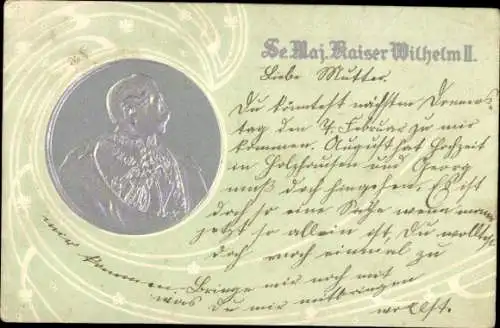 Se. Maj. Kaiser Wilhelm II.
Liebe Mutter.
Du könntest nächsten Donners-
tag den 7. Februar zu mir
kommen. August hat Hochzeit
in Holzhausen und Georg
muß doch hingehen. Es ist
doch so eine Sache wenn man
jetzt so allein ist, Du wolltest
doch noch einmal zu
mir kommen. Bringe mir noch mat
was Du mir mitbringen
wollst.